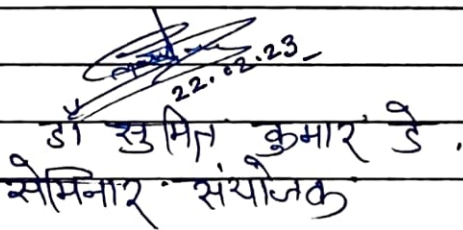 22.02.23
डॉ सुमित कुमार डे.
सेमिनार संयोजक